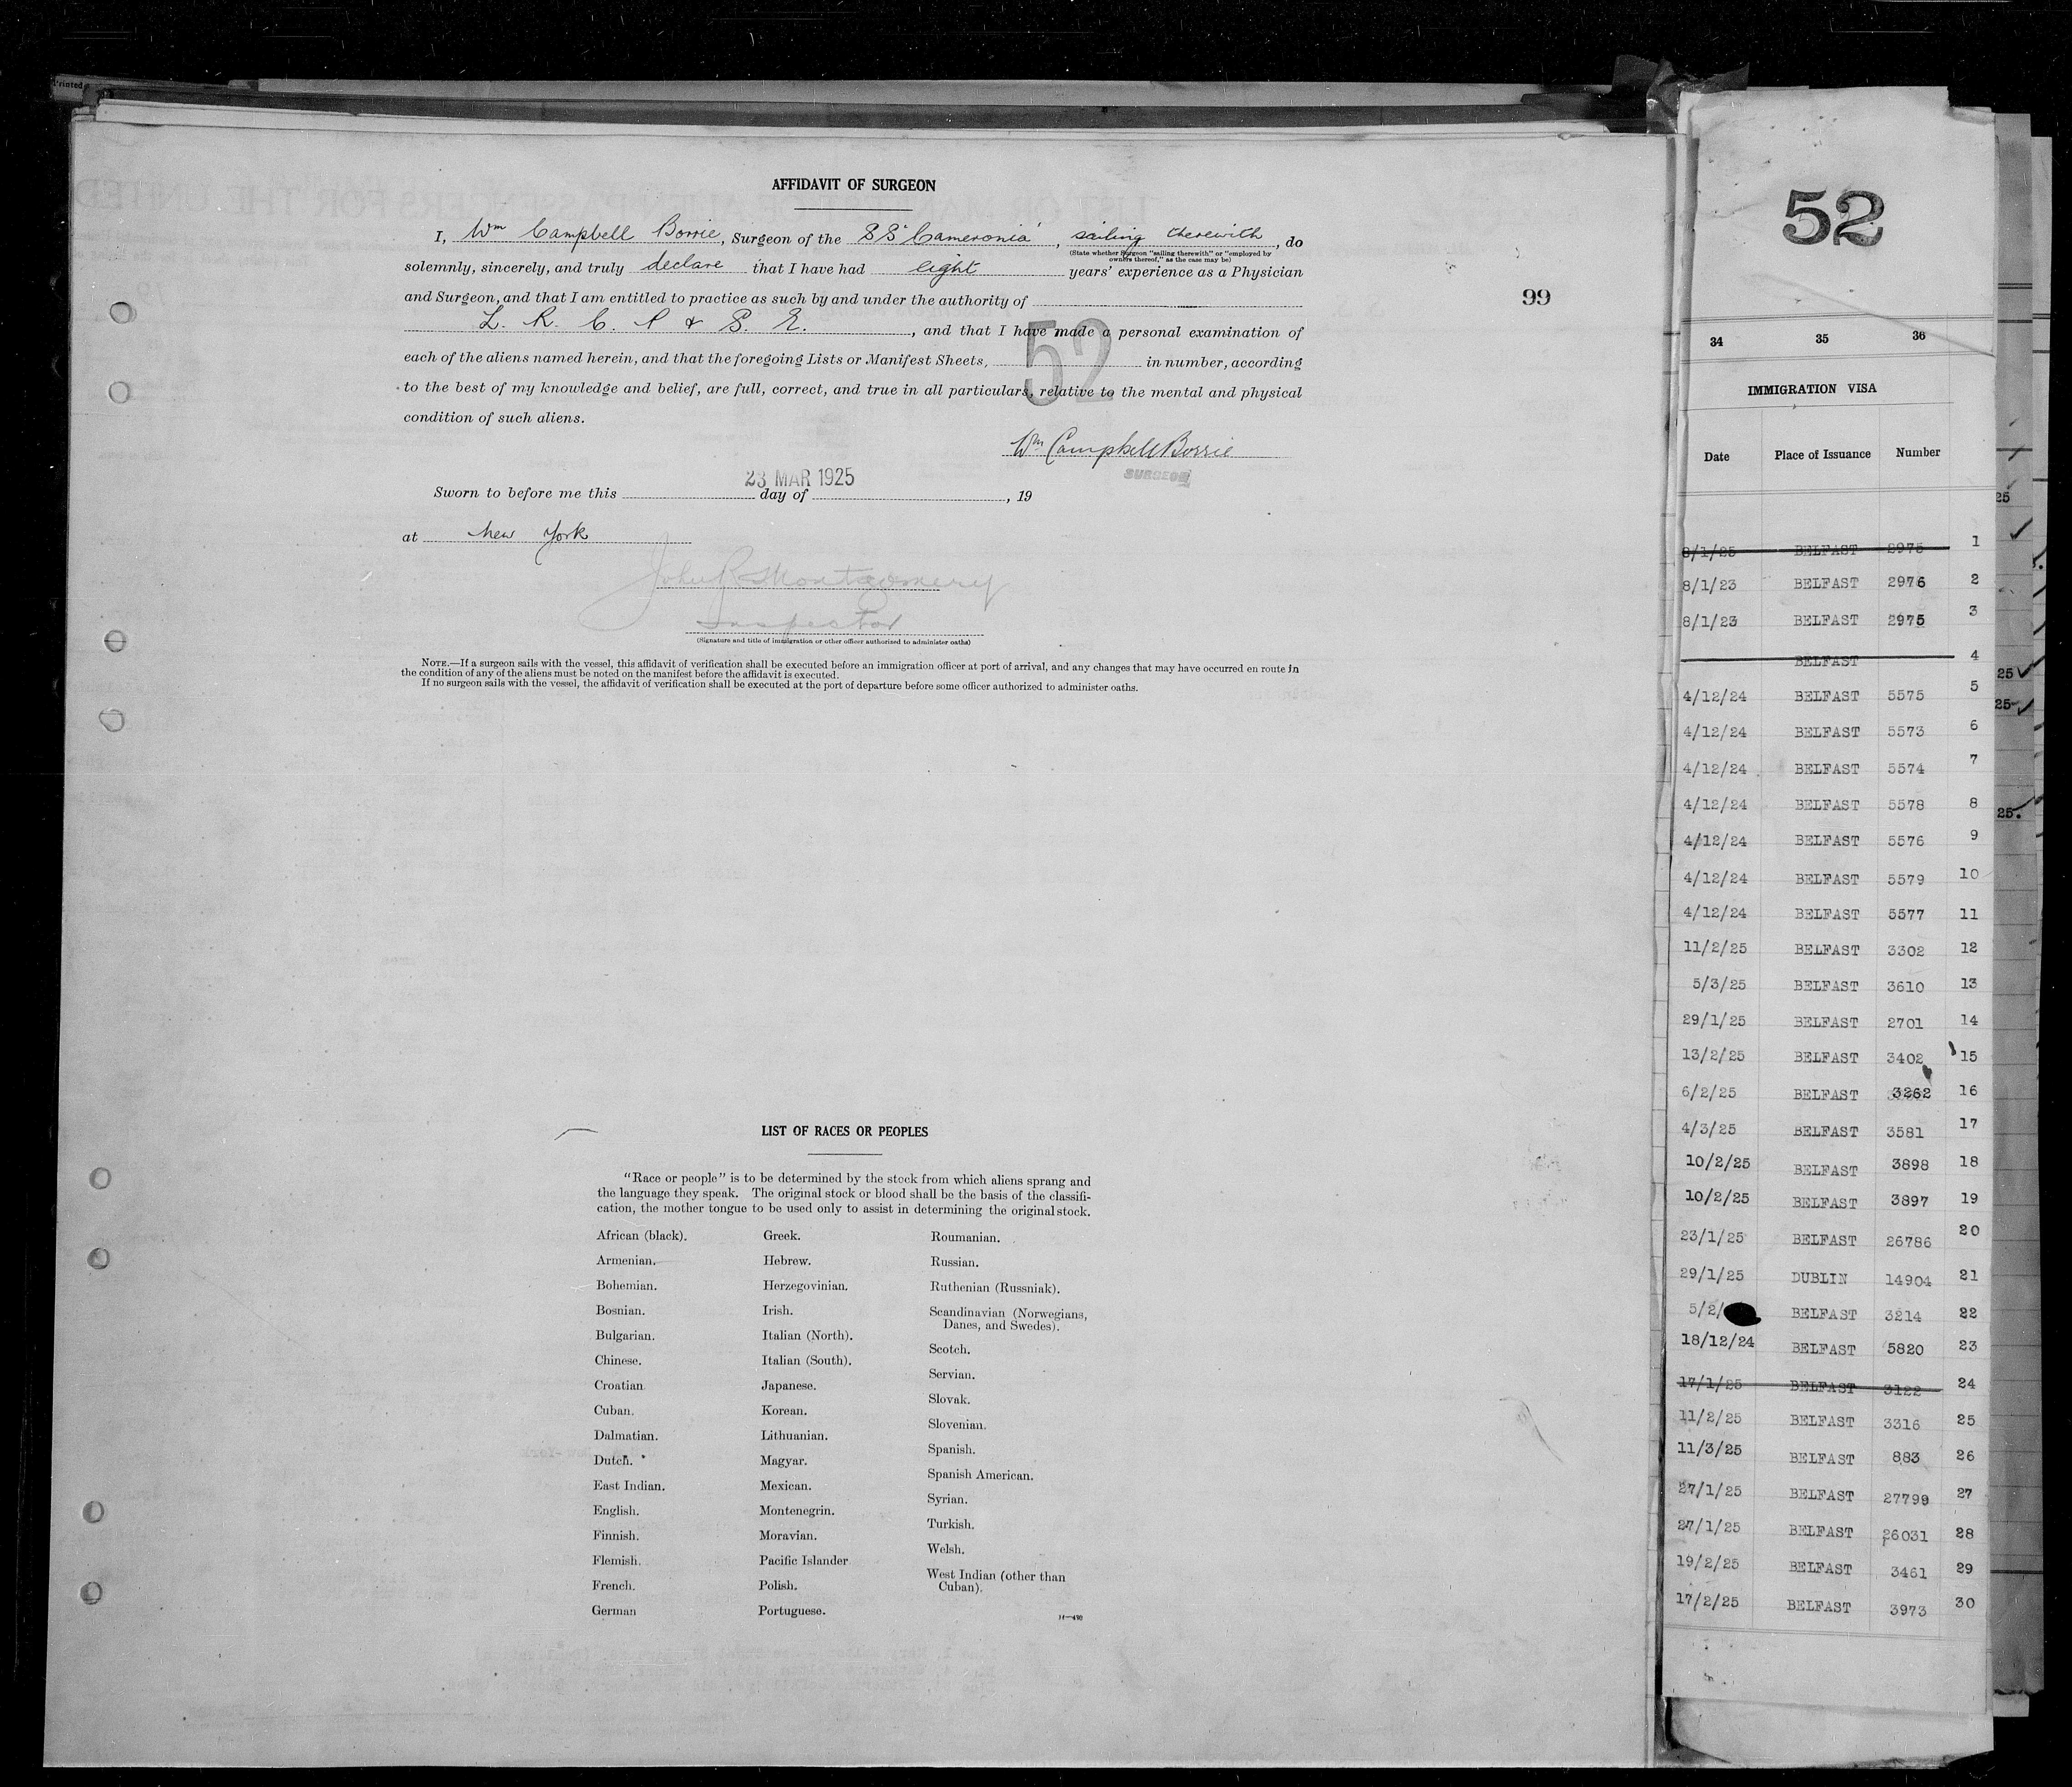 Printed
AFFIDAVIT OF SURGEON
I, Wm Campbell Borrie, Surgeon of the SS "Cameronia", sailing therewith, do
(State whether Surgeon "sailing therewith" or "employed by
owners thereof," as the case may be)
solemnly, sincerely, and truly declare that I have had eight years' experience as a Physician
and Surgeon, and that I am entitled to practice as such by and under the authority of
L. R. C. P & S. E., and that I have made a personal examination of
each of the aliens named herein, and that the foregoing Lists or Manifest Sheets, 52 in number, according
to the best of my knowledge and belief, are full, correct, and true in all particulars, relative to the mental and physical
condition of such aliens.
Wm Campbell Borrie
SURGEON
23 MAR 1925
Sworn to before me this day of , 19
at New York
John R Montgomery
Inspector
(Signature and title of immigration or other officer authorized to administer oaths)
NOTE.—If a surgeon sails with the vessel, this affidavit of verification shall be executed before an immigration officer at port of arrival, and any changes that may have occurred en route in
the condition of any of the aliens must be noted on the manifest before the affidavit is executed.
If no surgeon sails with the vessel, the affidavit of verification shall be executed at the port of departure before some officer authorized to administer oaths.
99
LIST OF RACES OR PEOPLES
"Race or people" is to be determined by the stock from which aliens sprang and
the language they speak. The original stock or blood shall be the basis of the classifi-
cation, the mother tongue to be used only to assist in determining the original stock.
African (black).
Armenian.
Bohemian.
Bosnian.
Bulgarian.
Chinese.
Croatian
Cuban.
Dalmatian.
Dutch.
East Indian.
English.
Finnish.
Flemish.
French.
German
Greek.
Hebrew.
Herzegovinian.
Irish.
Italian (North).
Italian (South).
Japanese.
Korean.
Lithuanian.
Magyar.
Mexican.
Montenegrin.
Moravian.
Pacific Islander
Polish.
Portuguese.
Roumanian.
Russian.
Ruthenian (Russniak).
Scandinavian (Norwegians,
Danes, and Swedes).
Scotch.
Servian.
Slovak.
Slovenian.
Spanish.
Spanish American.
Syrian.
Turkish.
Welsh.
West Indian (other than
Cuban).
52
34 35 36
IMMIGRATION VISA
Date Place of Issuance Number
8/1/25 BELFAST 2975 1
8/1/23 BELFAST 2976 2
8/1/23 BELFAST 2975 3
BELFAST 4
4/12/24 BELFAST 5575 5
4/12/24 BELFAST 5573 6
4/12/24 BELFAST 5574 7
4/12/24 BELFAST 5578 8
4/12/24 BELFAST 5576 9
4/12/24 BELFAST 5579 10
4/12/24 BELFAST 5577 11
11/2/25 BELFAST 3302 12
5/3/25 BELFAST 3610 13
29/1/25 BELFAST 2701 14
13/2/25 BELFAST 3402 15
6/2/25 BELFAST 3262 16
4/3/25 BELFAST 3581 17
10/2/25 BELFAST 3898 18
10/2/25 BELFAST 3897 19
23/1/25 BELFAST 26786 20
29/1/25 DUBLIN 14904 21
5/2/ BELFAST 3214 22
18/12/24 BELFAST 5820 23
17/1/25 BELFAST 3122 24
11/2/25 BELFAST 3316 25
11/3/25 BELFAST 883 26
27/1/25 BELFAST 27799 27
27/1/25 BELFAST 26031 28
19/2/25 BELFAST 3461 29
17/2/25 BELFAST 3973 30
25
25
25
25.